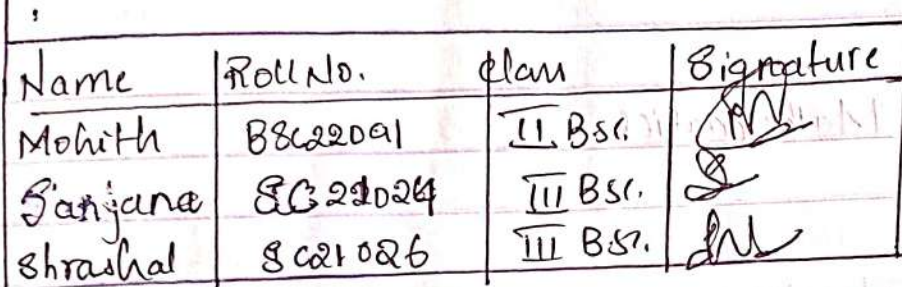 Name Roll No. Class Signature
Mohith BSC22091 II BSc.
Sanjana SC21024 III BSc.
Shrashal SC21026 III BSc.